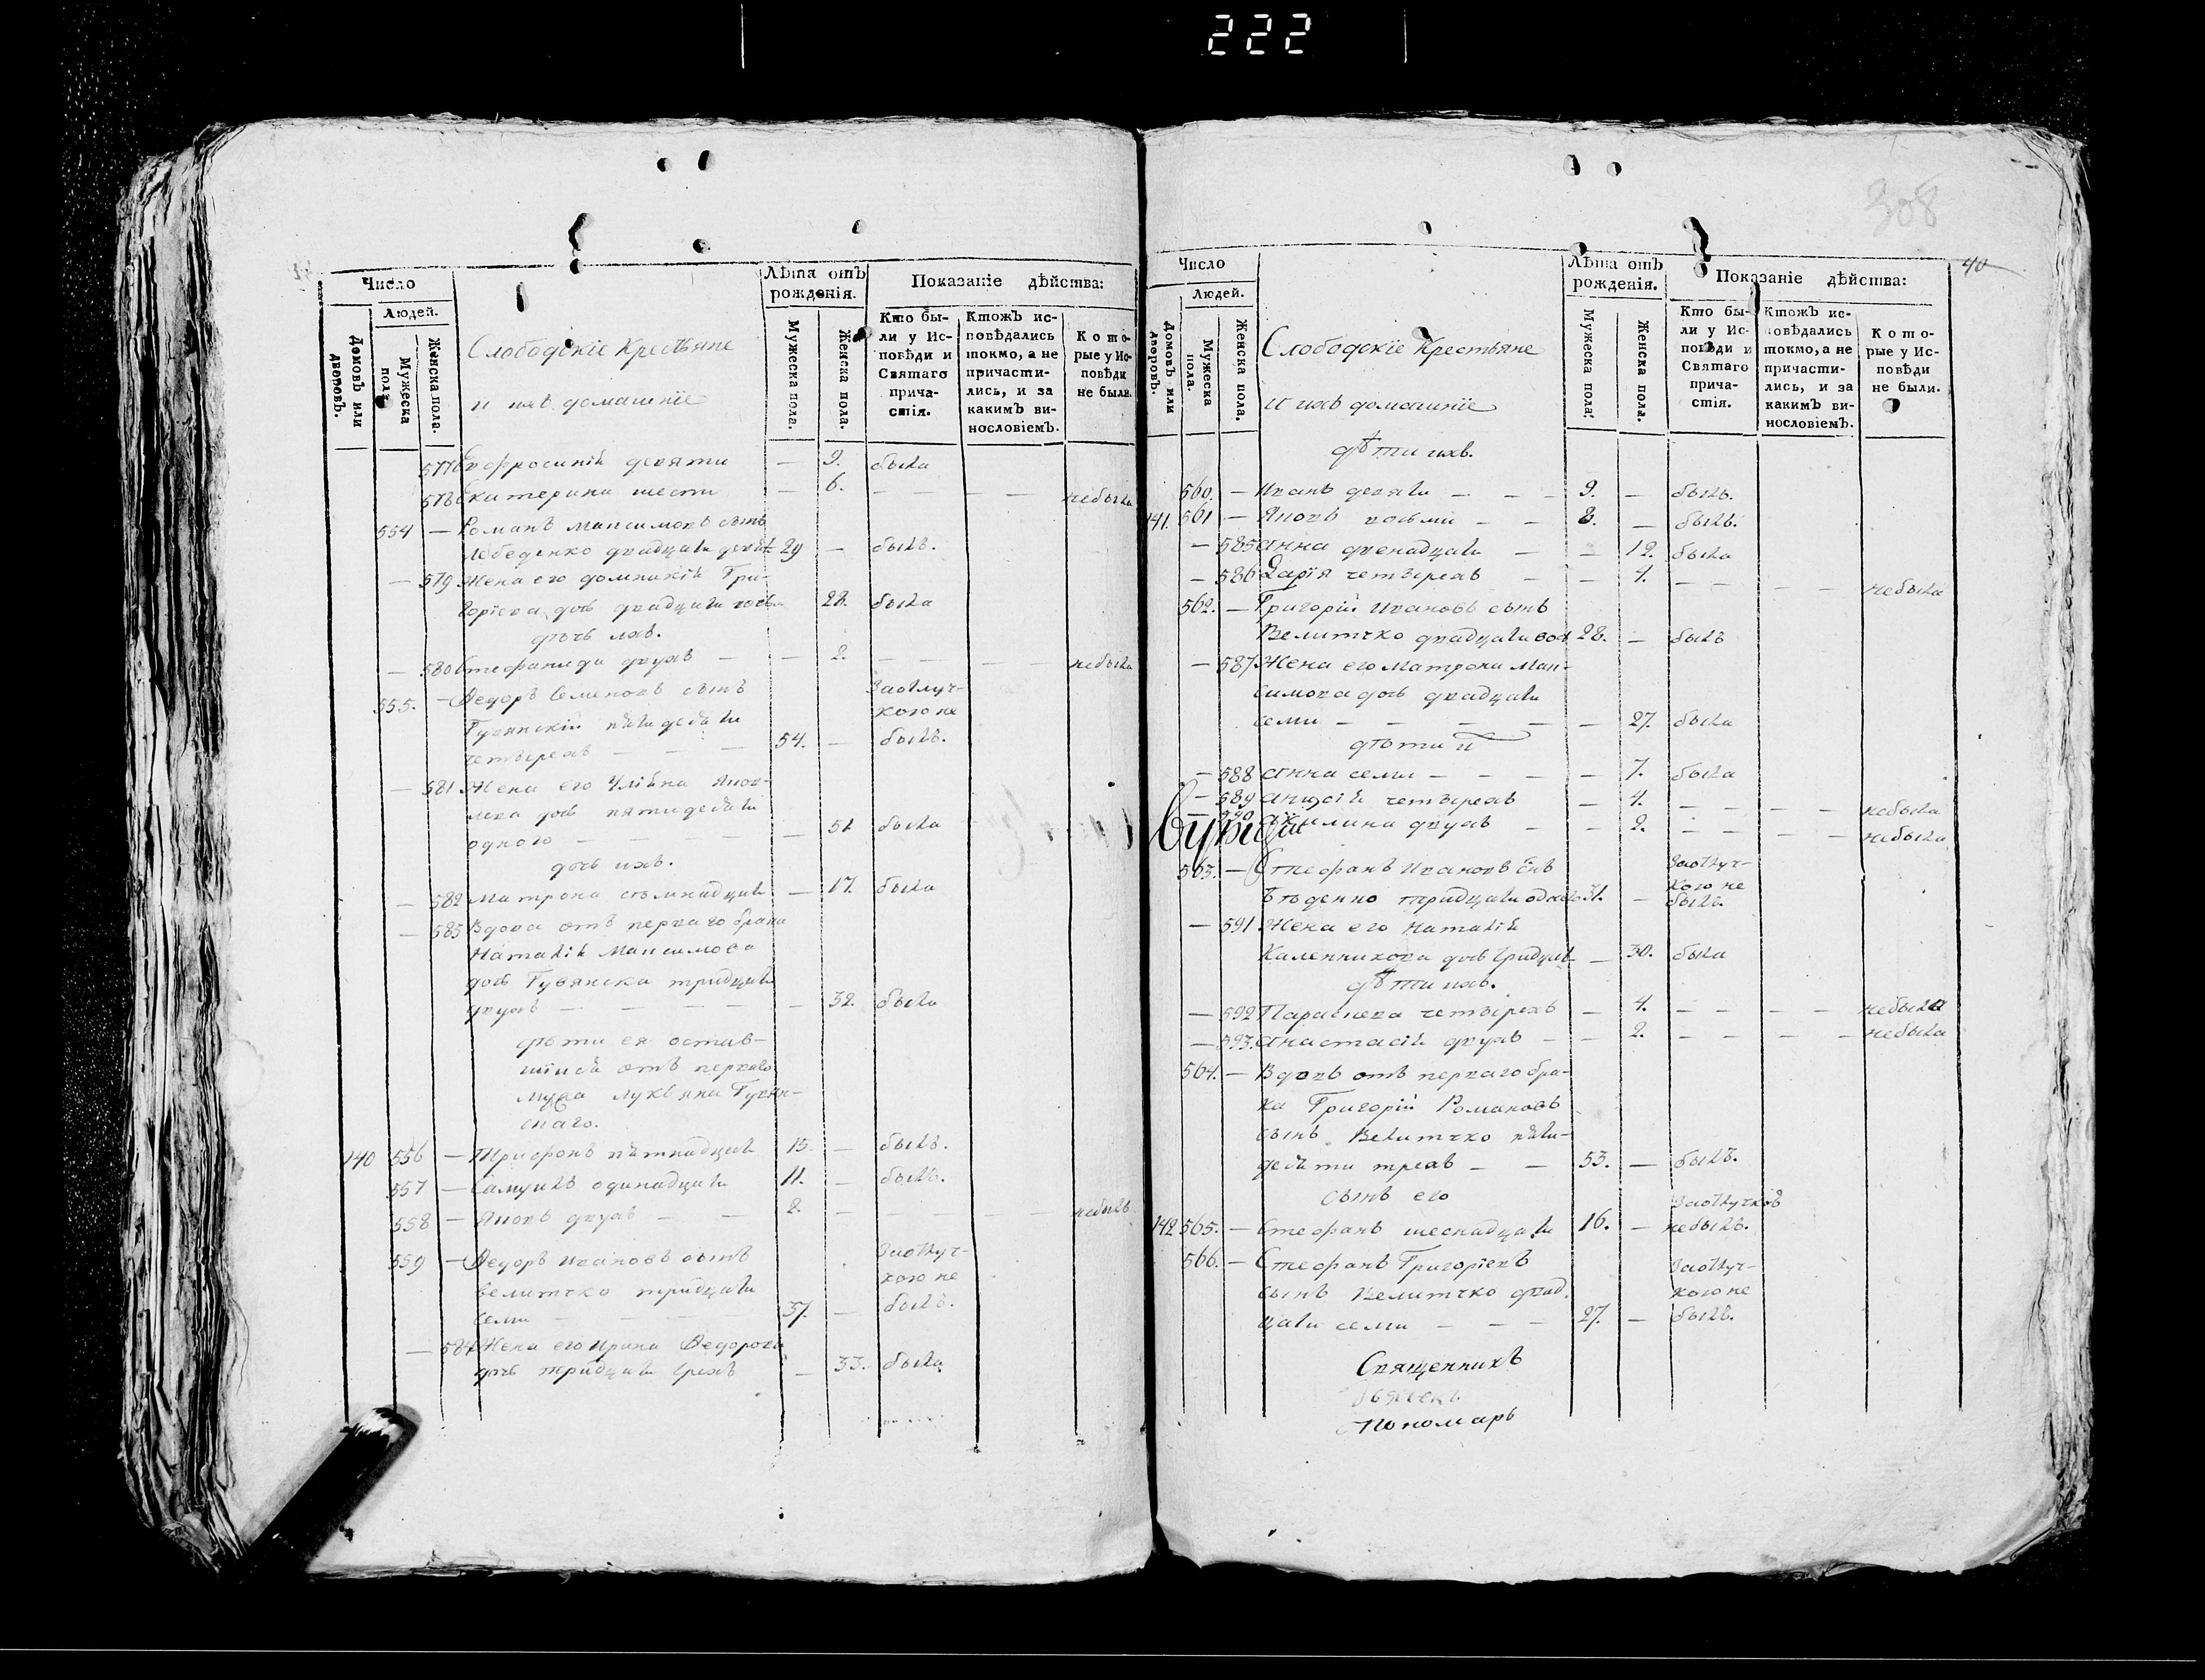 222
308
40
Число
Людей.
Домовъ или дворовъ.
Мужеска пола.
Женска пола.
Слободскіе Крестьяне
и ихъ домашніе
Лѣта отъ рожденія.
Мужеска пола.
Женска пола.
Показаніе дѣйства:
Кто были у Исповѣди и Святаго причастія.
Ктожъ исповѣдались токмо, а не причастились, и за какимъ винословіемъ.
Которые у Исповѣди не были.
577 Евфросинія девяти — 9. была
578 Екатерина шести — 6. — — — небыла
554 — Романъ Максимовъ сынъ
Лебеденко двадцати девят 29 — былъ.
— 579 Жена его Домникія Гри-
горіева дочь двадцати 28. была
дочь ихъ.
— 580 Стефанида двухъ — — 2. — — — небыла
555. — Федоръ Семеновъ сынъ Заотлуч-
Губянскій пятидесяти кою не
четырехъ — — — 54. — былъ.
— 581 Жена его Улияна Яков-
лева дочь пятидесяти
одного — — — — 51 была
дочь ихъ.
— 582 Матрона семнадцати — 17. была
— 583 Вдова отъ перваго брака
Наталія Максимова
дочь Губянска тридцати
двухъ — — — — — 32. была
дѣти ея остав-
шіися отъ перваго
мужа Лукьяна Губян-
скаго.
140 556 — Трифонъ пятнадцати 15. — былъ.
557 — Самуилъ одинадцати 11. — былъ.
558 — Яковъ двухъ — — 2. — — — — небылъ.
559 — Федоръ Ивановъ сынъ Заотлуч-
Велитчко тридцати кою не
семи — — — 37. — былъ.
— 584 Жена его Ирина Федорова
дочь тридцати трехъ — 33. была
Число
Людей.
Домовъ или дворовъ.
Мужеска пола.
Женска пола.
Слободскіе Крестьяне
и ихъ домашніе
Лѣта отъ рожденія.
Мужеска пола.
Женска пола.
Показаніе дѣйства:
Кто были у Исповѣди и Святаго причастія.
Ктожъ исповѣдались токмо, а не причастились, и за какимъ винословіемъ.
Которые у Исповѣди не были.
дѣти ихъ.
560. — Иванъ девяти — — — 9. — былъ.
141. 561 — Яковъ восьми — — 8. — былъ.
— 585 Анна двенадцати — — 12. была
— 586 Дарія четырехъ — — 4. — — — — небыла
562. — Григорій Ивановъ сынъ
Велитчко двадцати вос 28. — былъ
— 587 Жена его Матрона Мак-
симова дочь двадцати
семи — — — — — — 27. была
дѣти и
— 588 Анна семи — — — — 7. была
— 589 четырехъ — 4. — — — — небыла
— 590 Акилина двухъ — — 2. — — — — небыла
563. — Стефанъ Ивановъ снъ Заотлуч-
тридцати 31. — кою не
былъ.
— 591 Жена его Наталія
Каленикова дочь тридцат — 30. была
дѣти ихъ.
— 592 Параскева четырехъ — 4. — — — — небыла
— 593. Анастасія двухъ — — 2. — — — — небыла
564. — Вдовъ отъ перваго бра-
ка Григорій Романовъ
сынъ Велитчко пяти-
десяти трехъ — — 53. — былъ.
сынъ его Заотлучкою
142 565. — Стефанъ шеснадцати 16. — небылъ.
566. — Стефанъ Григоріевъ Заотлуч-
сынъ Велитчко двад- кою не
цати семи — — — 27. — былъ.
Священникъ
Пономарь